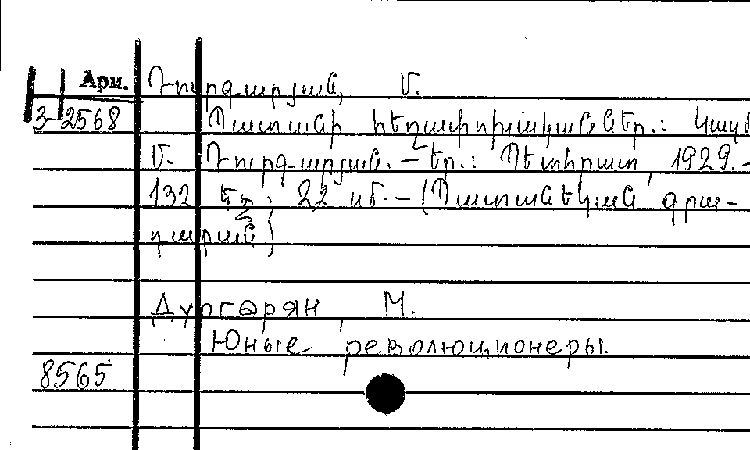 Арм. Դուրգարյան, Մ.
3-2568 Պատանի հեղափոխականներ.: Կազմ
Մ. Դուրգարյան. — Եր.: Պետհրատ, 1929.-
132 էջ; 22 սմ. - (Պատանեկան գրա-
դարան)
Дургарян, М.
Юные революционеры.
8565